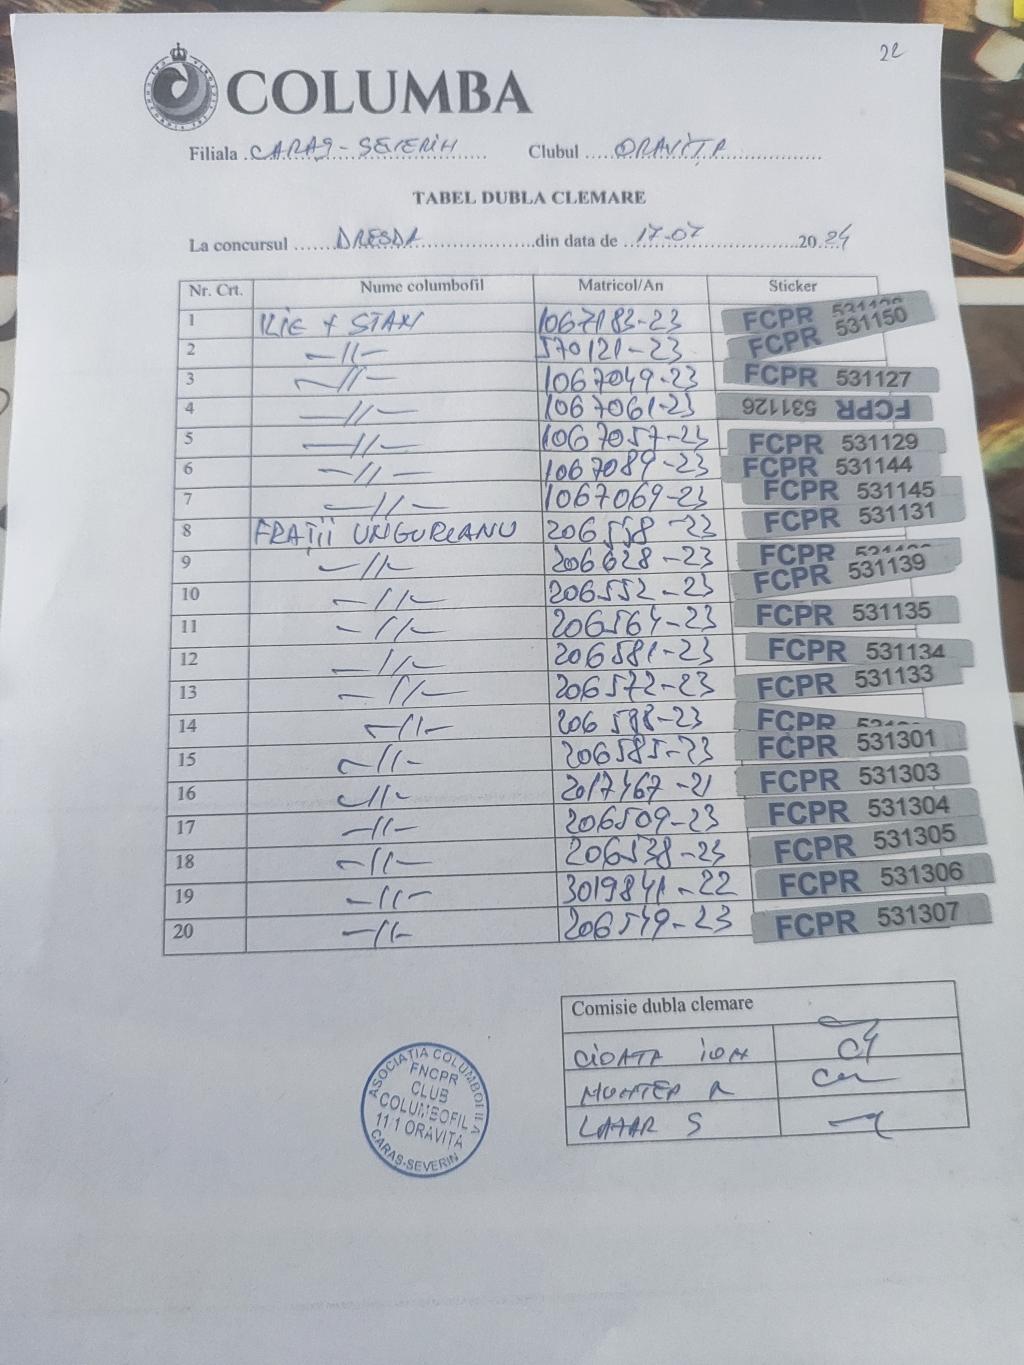 22
COLUMBA
Filiala CARAȘ-SEVERIN Clubul ORAVIȚA
TABEL DUBLA CLEMARE
La concursul DRESDA din data de 17-07 2024
Nr. Crt. Nume columbofil Matricol/An Sticker
1 ILIE + STAN 1067183-23 FCPR
2 —//— 570121-23 FCPR 531150
3 —//— 1067049-23 FCPR 531127
4 —//— 1067061-23 FCPR 531126
5 —//— 1067057-23 FCPR 531129
6 —//— 1067089-23 FCPR 531144
7 —//— 1067069-23 FCPR 531145
8 FRAȚII UNGUREANU 206558-23 FCPR 531131
9 —//— 206628-23 FCPR
10 —//— 206552-23 FCPR 531139
11 —//— 206564-23 FCPR 531135
12 —//— 206581-23 FCPR 531134
13 —//— 206572-23 FCPR 531133
14 —//— FCPR
15 —//— 206585-23 FCPR 531301
16 —//— 2017467-21 FCPR 531303
17 —//— 206509-23 FCPR 531304
18 —//— 206538-23 FCPR 531305
19 —//— 3019841-22 FCPR 531306
20 —//— 206549-23 FCPR 531307
Comisie dubla clemare
CIOATA ION
MUNTEP R
LAZAR S
ASOCIATIA COLUMBOFILA
FNCPR
CLUB
COLUMBOFIL
111 ORAVITA
CARAS-SEVERIN